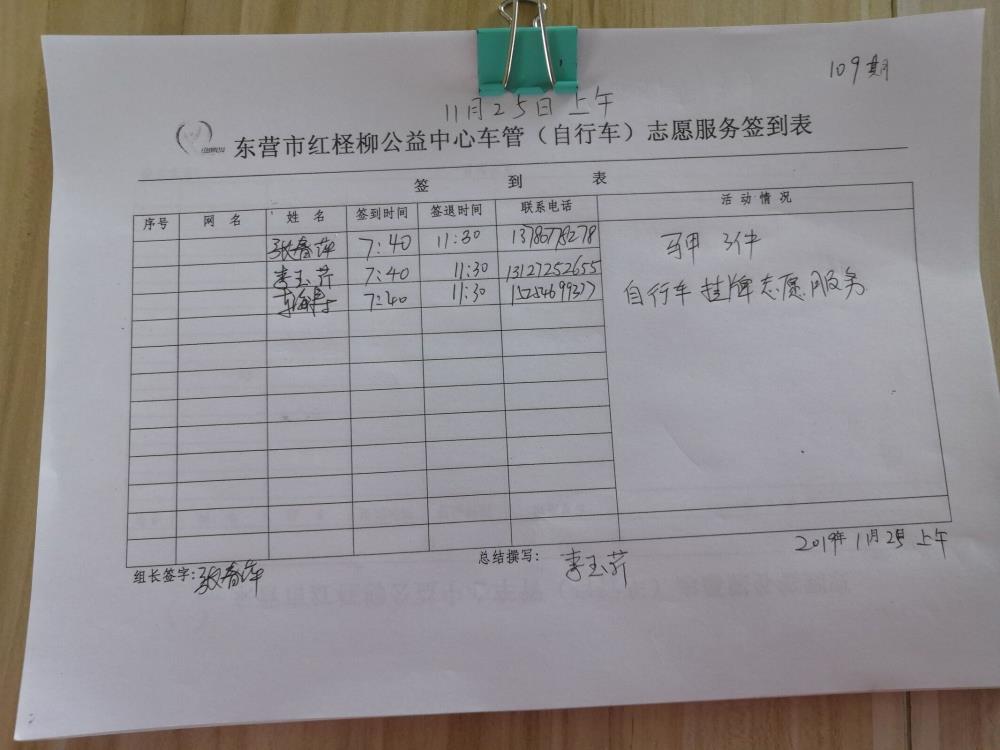 109期
11月25日上午
东营市红柽柳公益中心车管（自行车）志愿服务签到表
签 到 表
序号 网名 姓名 签到时间 签退时间 联系电话 活动情况
张春萍 7:40 11:30 马甲 3件
李玉芹 7:40 11:30 13127252655
7:40 11:30 15254699377
自行车挂牌志愿服务
组长签字:张春萍 总结撰写: 李玉芹
2019年11月25日 上午